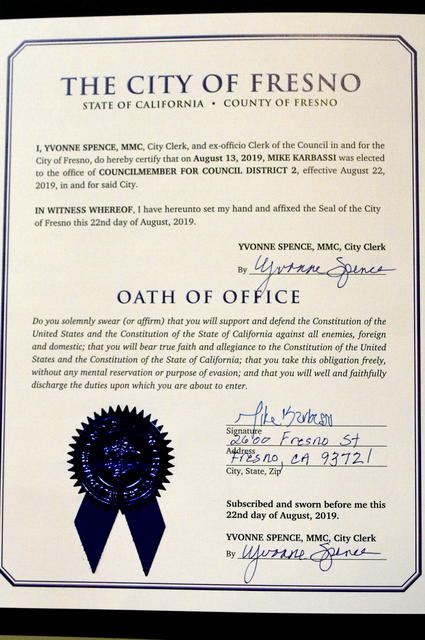 THE CITY OF FRESNO
STATE OF CALIFORNIA • COUNTY OF FRESNO
I, YVONNE SPENCE, MMC, City Clerk, and ex-officio Clerk of the Council in and for the
City of Fresno, do hereby certify that on August 13, 2019, MIKE KARBASSI was elected
to the office of COUNCILMEMBER FOR COUNCIL DISTRICT 2, effective August 22,
2019, in and for said City.
IN WITNESS WHEREOF, I have hereunto set my hand and affixed the Seal of the City
of Fresno this 22nd day of August, 2019.
YVONNE SPENCE, MMC, City Clerk
By Yvonne Spence
OATH OF OFFICE
Do you solemnly swear (or affirm) that you will support and defend the Constitution of the
United States and the Constitution of the State of California against all enemies, foreign
and domestic; that you will bear true faith and allegiance to the Constitution of the United
States and the Constitution of the State of California; that you take this obligation freely,
without any mental reservation or purpose of evasion; and that you will well and faithfully
discharge the duties upon which you are about to enter.
Mike Karbassi
Signature
2600 Fresno St
Address
Fresno, CA 93721
City, State, Zip
Subscribed and sworn before me this
22nd day of August, 2019.
YVONNE SPENCE, MMC, City Clerk
By Yvonne Spence